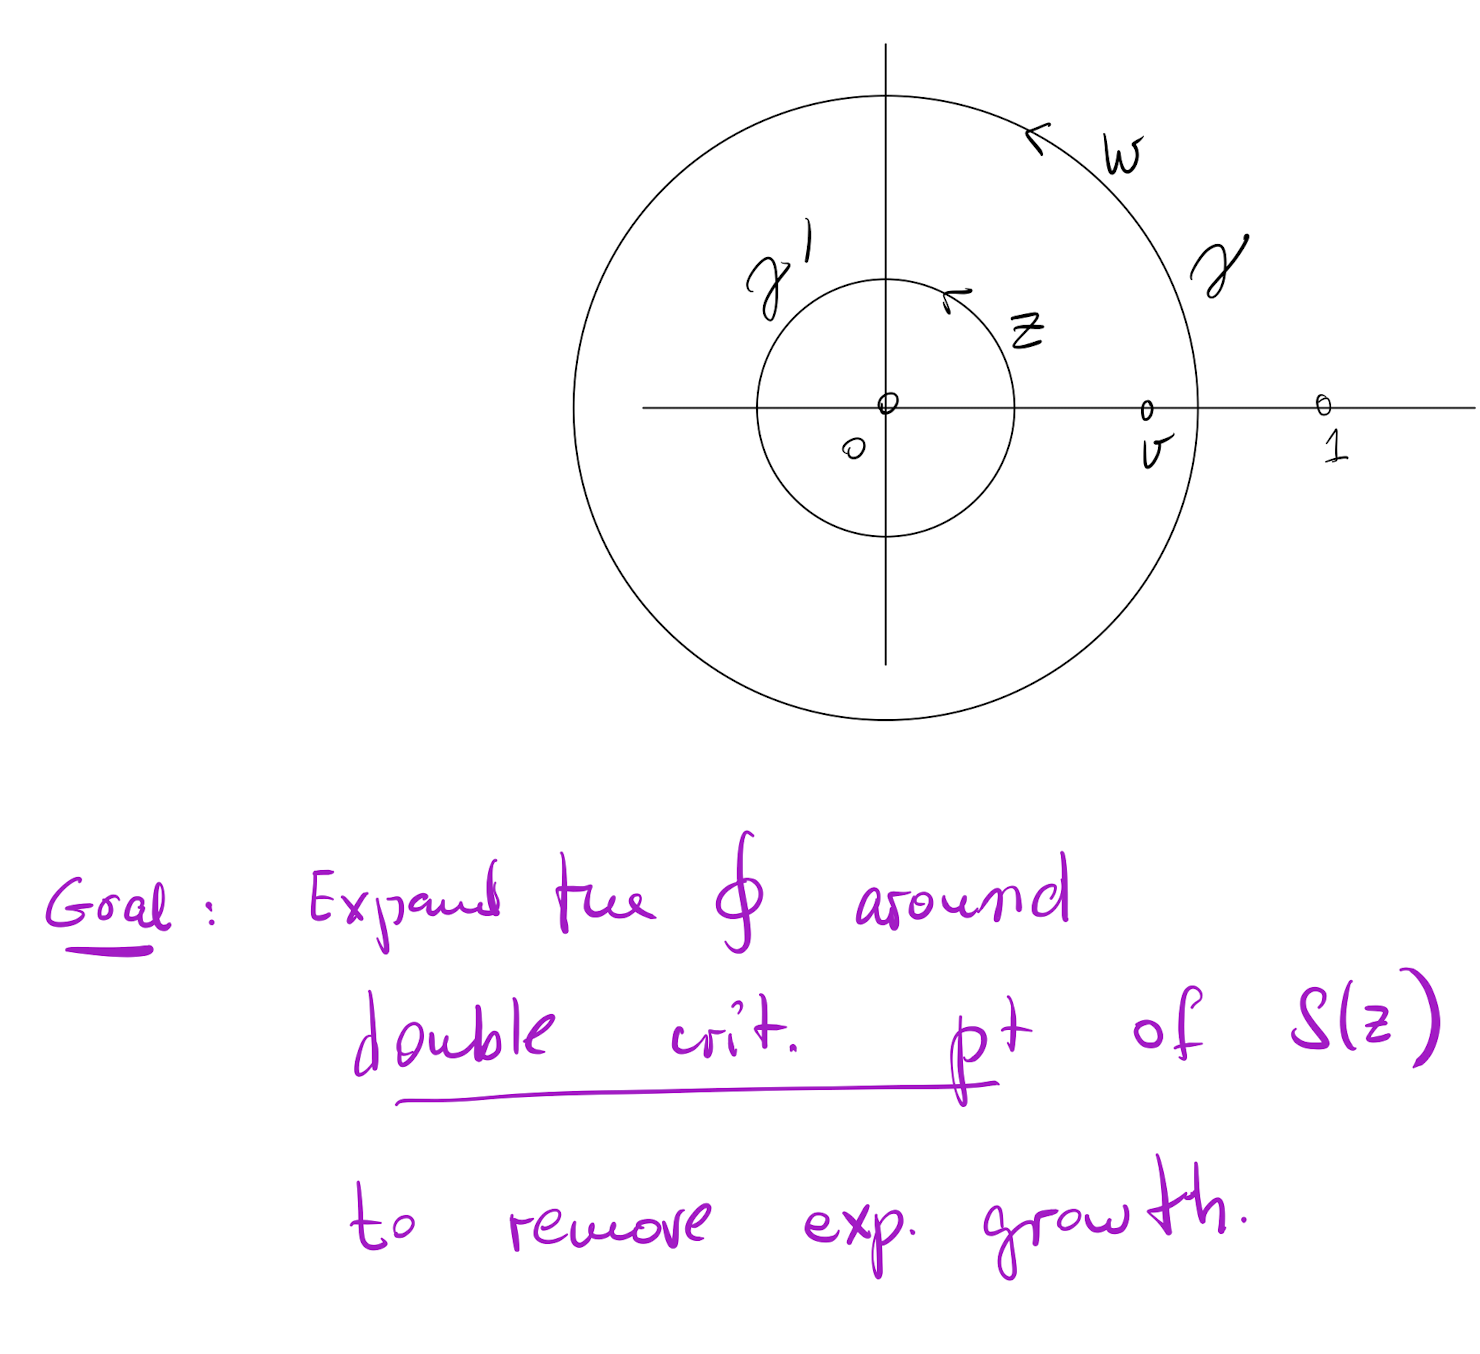 w
γ
γ'
z
0
v
1
Goal: Expand the ∮ around
double crit. pt of S(z)
to remove exp. growth.